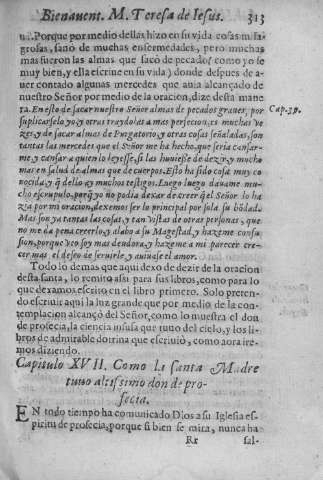 Bienauent. M. Teresa de Iesus. 313
u. Porque por medio dellas hizo en su vida cosas mila
grosas, sanò de muchas enfermedades, pero muchas
mas fueron las almas que sacò de pecado (como yo se
muy bien, y ella escriue en su vida) donde despues de a-
uer contado algunas mercedes que auia alcançado de
nuestro Señor por medio de la oracion, dize desta mane
ra. En esto de sacar nuestro Señor almas de pecados graues, por Cap. 39.
suplicarselo yo, y otras traydolas a mas perfecion, es muchas ve
zes, y de sacar almas de Purgatorio, y otras cosas señaladas, son
tantas las mercedes que el Señor me ha hecho, que seria cansar-
me, y cansar a quien lo leyesse, si las huuiesse de dezir, y mucho
mas en salud de almas que de cuerpos. Esto ha sido cosa muy co
nocida, y q̃ dello ay muchos testigos. Luego luego dauame mu-
cho escrupulo, porq̃ yo no podia dexar de creer q̃ el Señor lo ha
zia por mi oracion, dexemos ser lo principal por sola su bõdad.
Mas son ya tantas las cosas, y tan vistas de otras personas, que
no me da pena creerlo, y alabo a su Magestad, y hazeme confu-
sion, porque veo soy mas deudora, y hazeme a mi parecer cre-
cer mas el desseo de seruirle, y auiuase el amor.
Todo lo demas que aqui dexo de dezir de la oracion
desta santa, lo remito assi para sus libros, como para lo
que dexamos escrito en el libro primero. Solo preten-
do escriuir aqui la luz grande que por medio de la con-
templacion alcançò del Señor, como lo muestra el don
de profecia, la ciencia infusa que tuuo del cielo, y los li-
bros de admirable dotrina que escriuiò, como aora ire-
mos diziendo.
Capitulo XVII. Como la santa Madre
tuuo altissimo don de pro-
fecia.
EN todo tiempo ha comunicado Dios a su Iglesia es-
piritu de profecia, porque si bien se mira, nunca ha
Rr sal-